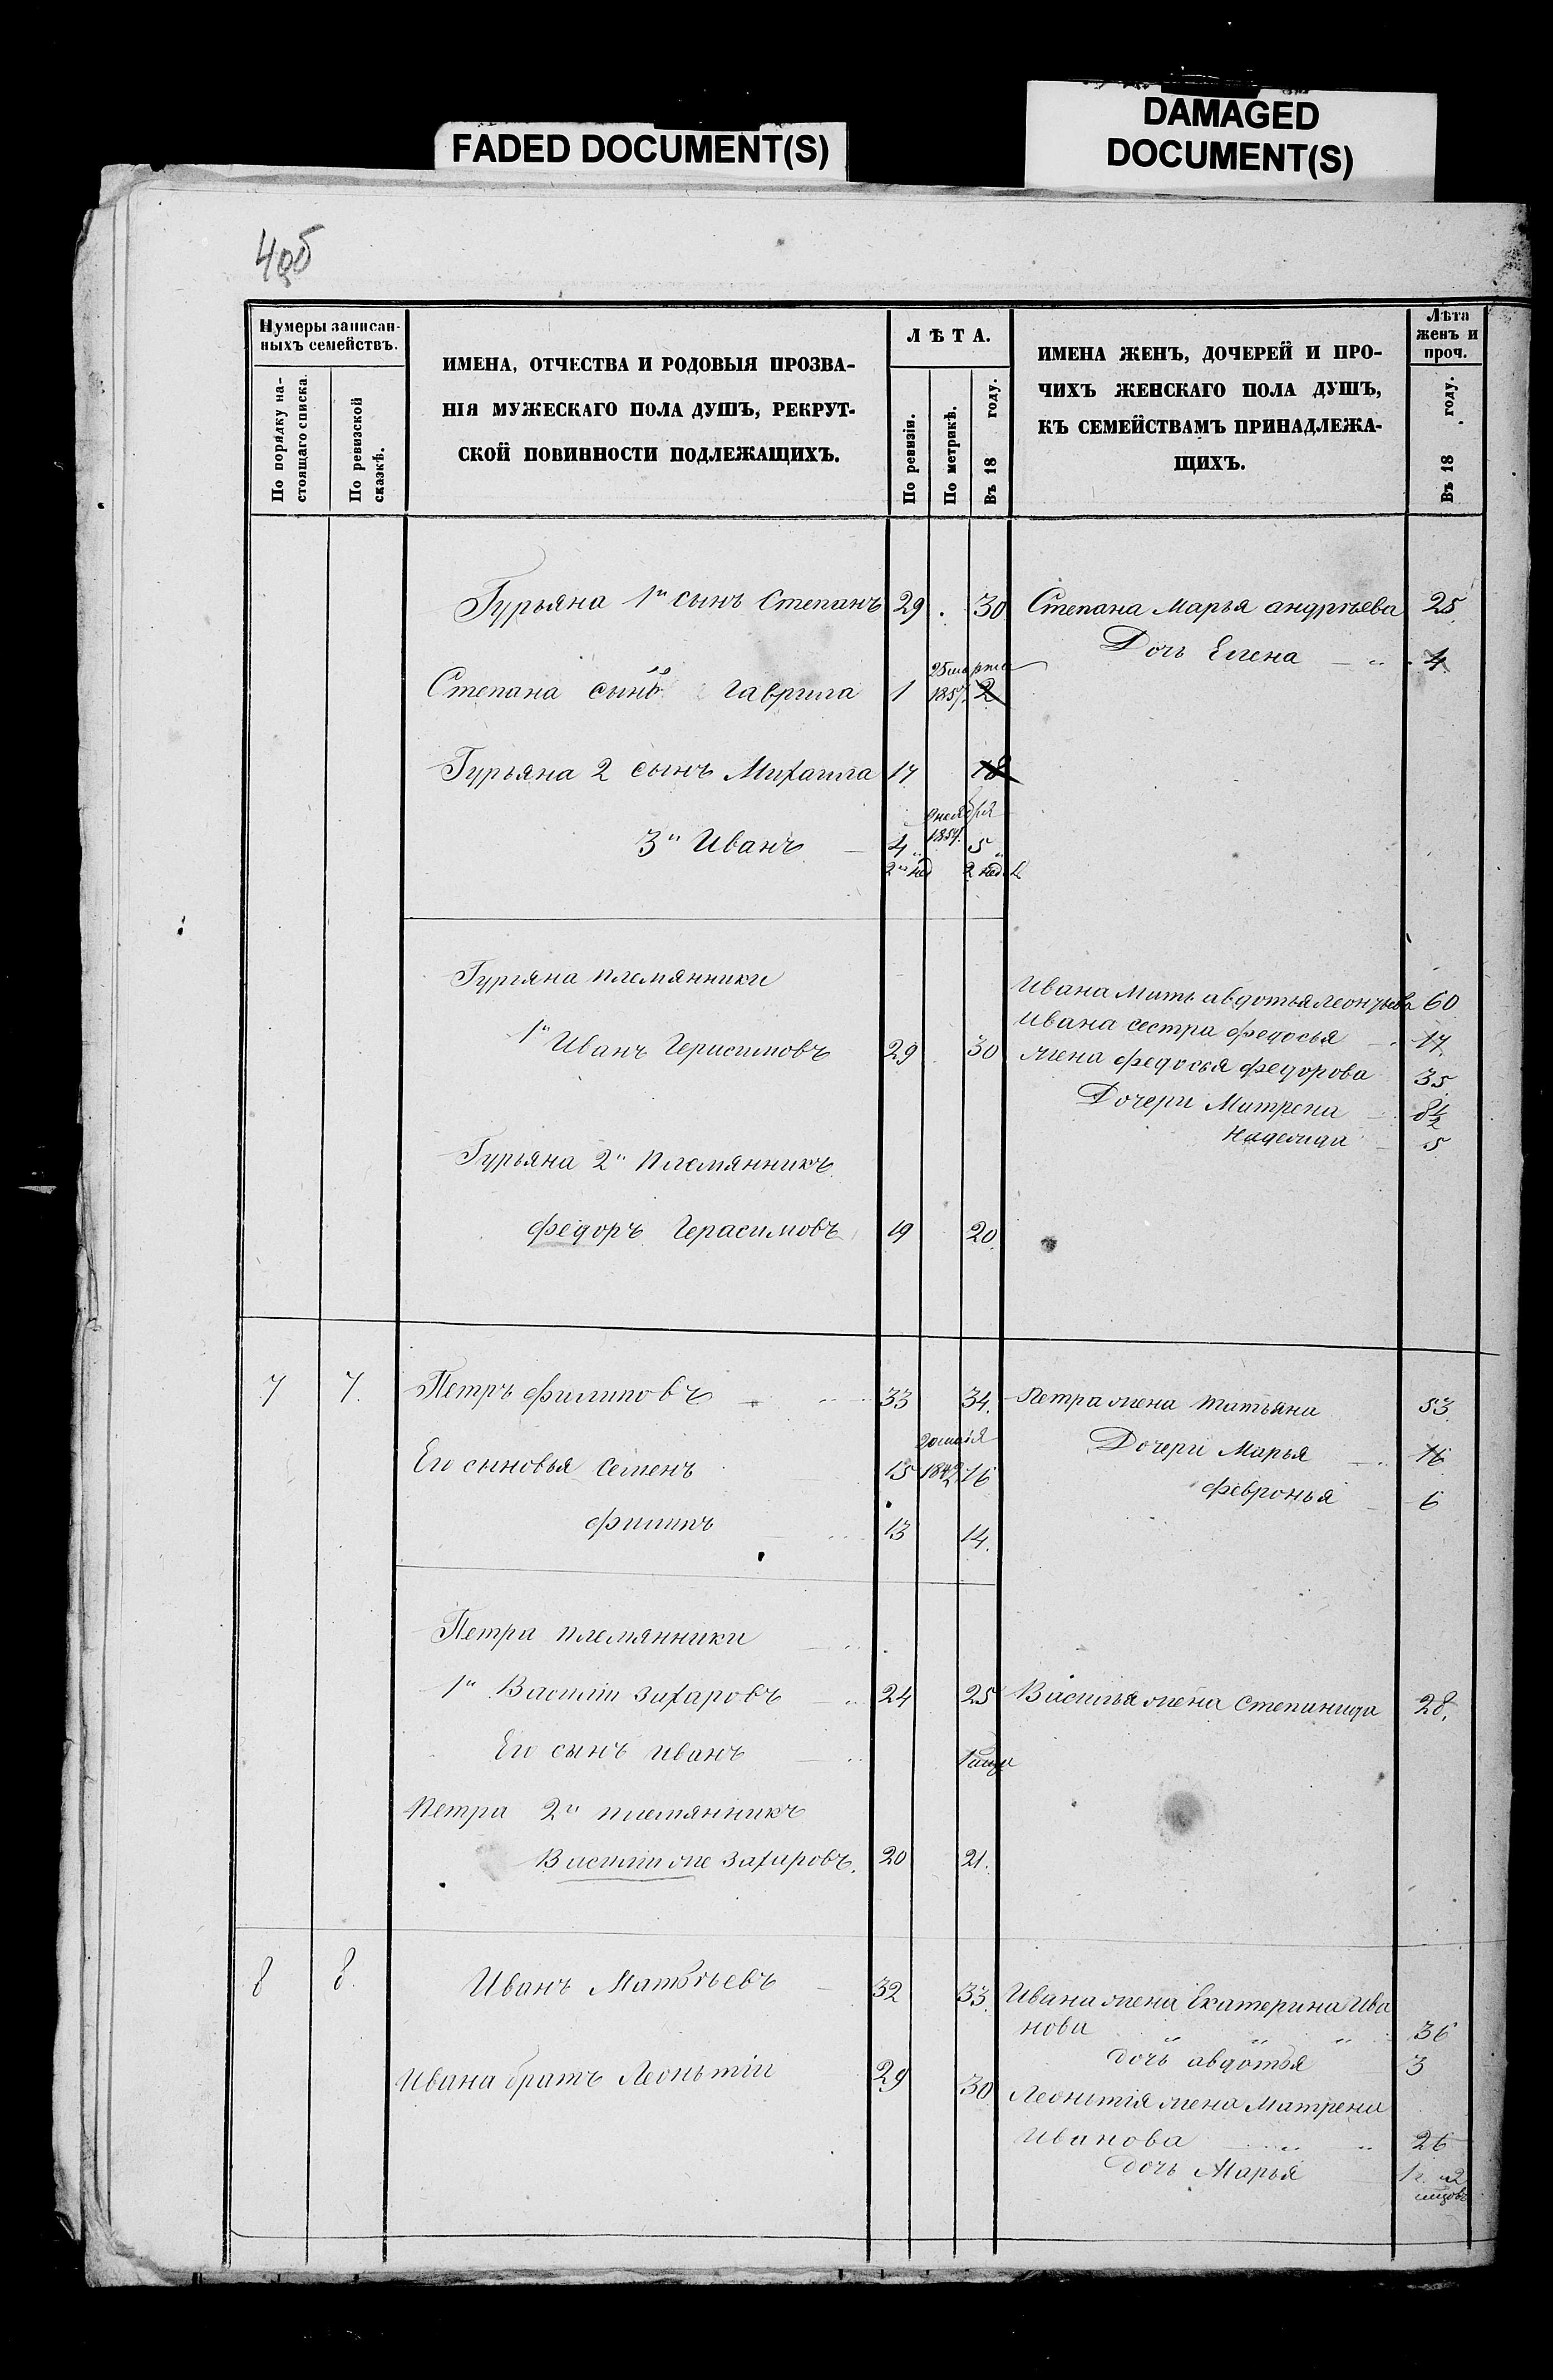 FADED DOCUMENT(S)
DAMAGED
DOCUMENT(S)
4об
Нумеры записан-
ныхъ семействъ.
По порядку на-
стоящаго списка.
По ревизской
сказкѣ.
ИМЕНА, ОТЧЕСТВА И РОДОВЫЯ ПРОЗВА-
НІЯ МУЖЕСКАГО ПОЛА ДУШЪ, РЕКРУТ-
СКОЙ ПОВИННОСТИ ПОДЛЕЖАЩИХЪ.
ЛѢТА.
По ревизіи.
По метрикѣ.
Въ 18 году.
ИМЕНА ЖЕНЪ, ДОЧЕРЕЙ И ПРО-
ЧИХЪ ЖЕНСКАГО ПОЛА ДУШЪ,
КЪ СЕМЕЙСТВАМЪ ПРИНАДЛЕЖА-
ЩИХЪ.
Лѣта
женъ и
проч.
Въ 18 году.
Гурьяна 1й сынъ Степанъ 29 30 Степана Марья андрѣева 25
Дочь Елена 4
25 марта
Степана сынъ Гаврила 1 1857 2
Гурьяна 2 сынъ Михаила 17 18
ноября
3й Иванъ 4 1854 5
2 нед 2 нед
Гурьяна племянники
Ивана Мать авдотья леонтьева 60
Ивана сестра федосья 17
1й Иванъ Герасимовъ 29 30 жена федосья федорова 35
Дочери Матрена 8 1/2
Надежда 5
Гурьяна 2й племянникъ
федоръ Герасимовъ 19 20
7 7. Петръ филиповъ 33 34. Петра жена татьяна 53
20 мая
Дочери Марья 16
Его сыновья семенъ 15 1842 16
февронья 6
филипъ 13 14.
Петра племянники
1й Василій захаровъ 24 25 Василья жена степанида 28.
Его сынъ иванъ
Петра 2й племянникъ
Василій же захаровъ. 20 21.
8 8. Иванъ Матвѣевъ 32 33. Ивана жена екатерина Ива
нова 36
дочь авдотья 3
Ивана братъ Леонтій 29 30 Леонтія жена матрена
Иванова 26
дочь Марья 1 г. и 2
мцовъ